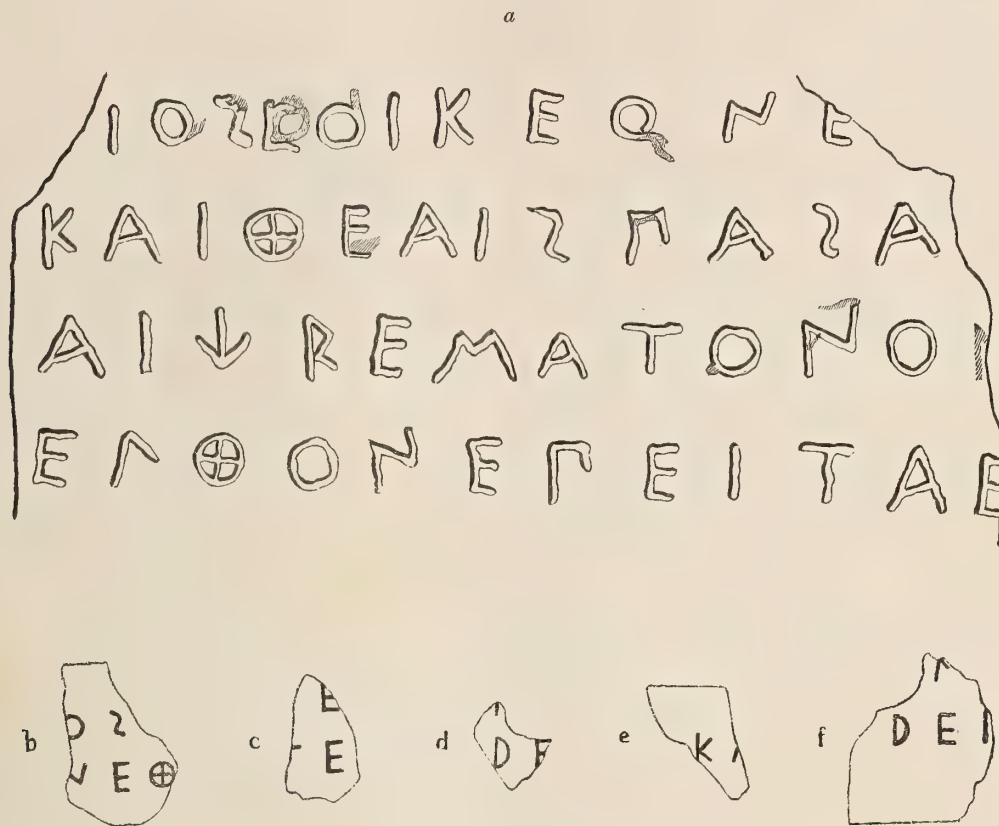 a
ΙΟΣΕΟΙΚΕΟΝΕ
ΚΑΙΘΕΑΙΣΠΑΣΑ
ΑΙΧΡΕΜΑΤΟΝΟΙ
ΕΛΘΟΝΕΠΕΙΤΑ
b
ΟΣ
ΕΘ
c
Ε
Ε
d
DE
e
Κ
f
DΕΙ